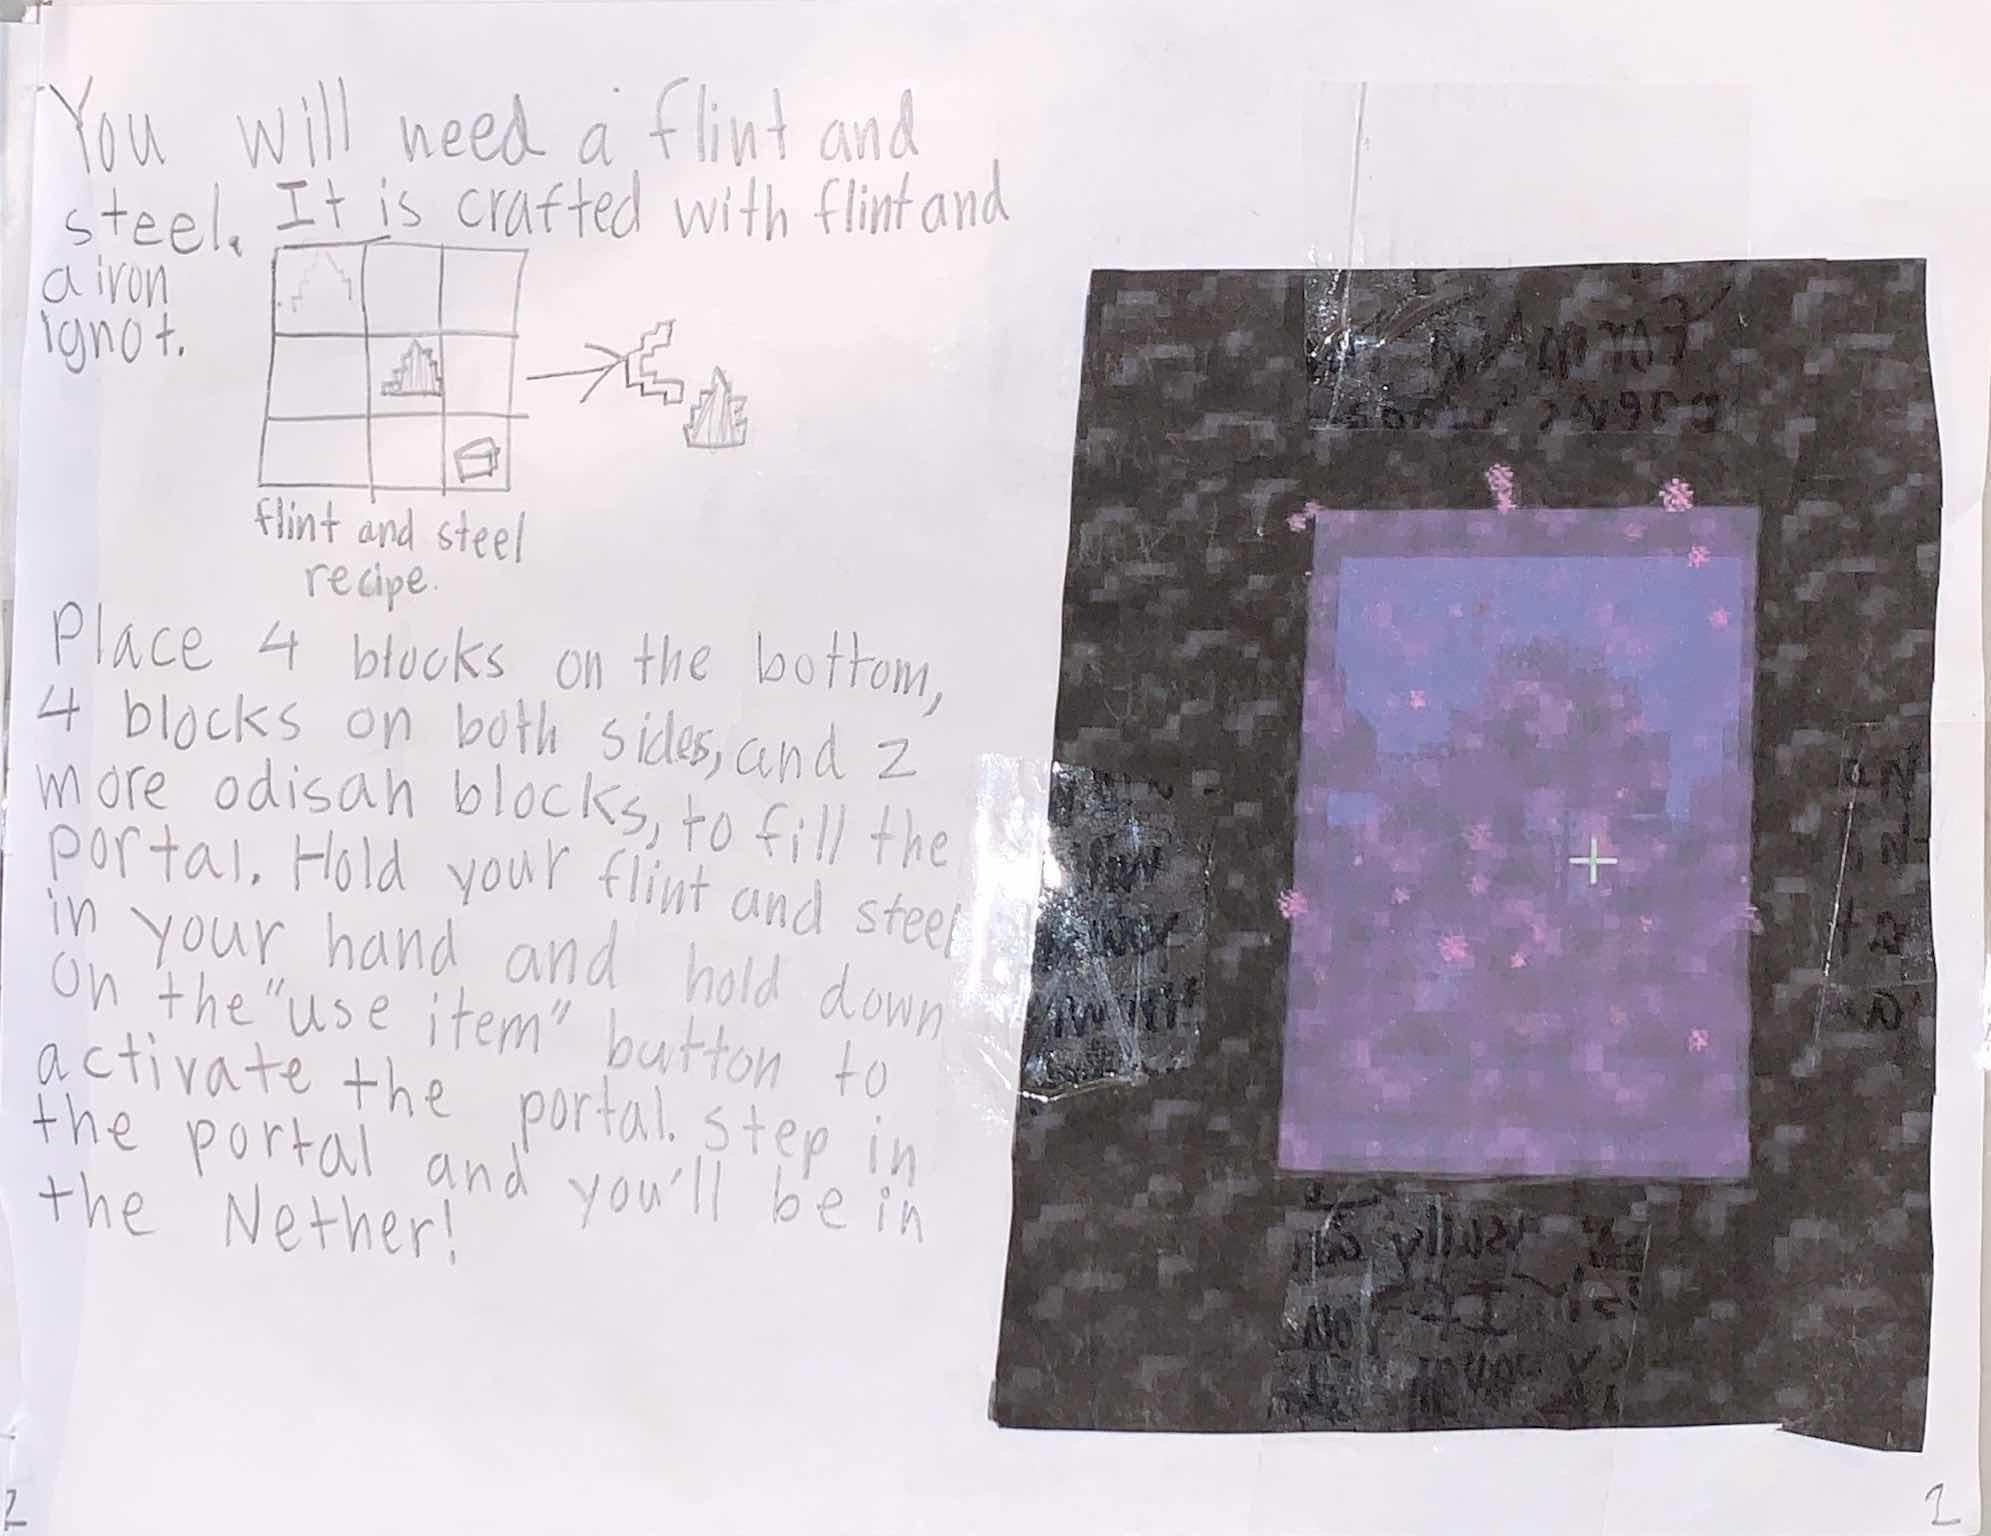 You will need a flint and
steel. It is crafted with flint and
a iron
ignot.
flint and steel
recipe.
Place 4 blocks on the bottom,
4 blocks on both sides, and 2
more odisan blocks, to fill the
portal. Hold your flint and steel
in your hand and hold down
on the "use item" button to
activate the portal. Step in
the portal and you'll be in
the Nether!
2
2